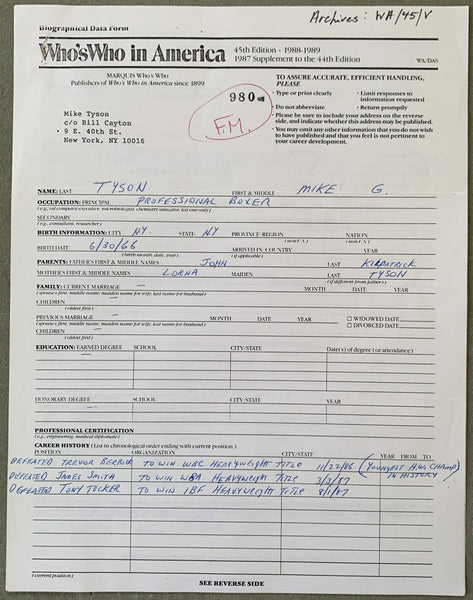 Archives: WA/45/V
Biographical Data Form
Who'sWho in America 45th Edition · 1988-1989
1987 Supplement to the 44th Edition WA/DAS
MARQUIS Who's Who
Publishers of Who's Who in America since 1899
TO ASSURE ACCURATE, EFFICIENT HANDLING,
PLEASE
• Type or print clearly • Limit responses to information requested
• Do not abbreviate • Return promptly
• Please be sure to include your address on the reverse
side, and indicate whether this address may be published.
• You may omit any other information that you do not wish
to have published and that you feel is not pertinent to
your career development.
980
F.M.
Mike Tyson
c/o Bill Cayton
9 E. 40th St.
New York, NY 10016
NAME: LAST TYSON FIRST & MIDDLE MIKE G.
OCCUPATION: PRINCIPAL PROFESSIONAL BOXER
SECONDARY
(e.g., consultant, researcher)
BIRTH INFORMATION: CITY NY. STATE: NY PROVINCE/REGION NATION
BIRTH DATE 6/30/66 ARRIVED IN COUNTRY YEAR
(birth month, date, year) (if applicable)
PARENTS: FATHER'S FIRST & MIDDLE NAMES JOHN LAST KIRPATRICK
MOTHER'S FIRST & MIDDLE NAMES LORNA MAIDEN LAST TYSON
(if different from father's)
FAMILY: CURRENT MARRIAGE — MONTH DATE YEAR
(spouse's first, middle name; maiden name for wife, last name for husband)
CHILDREN
(oldest first)
PREVIOUS MARRIAGE — MONTH DATE YEAR ☐ WIDOWED DATE
(spouse's first, middle name; maiden name for wife, last name for husband) ☐ DIVORCED DATE
CHILDREN —
(oldest first)
EDUCATION: EARNED DEGREE SCHOOL CITY/STATE Date(s) of degree (or attendance)
—
HONORARY DEGREE SCHOOL CITY/STATE YEAR
—
PROFESSIONAL CERTIFICATION
(e.g., engineering, medical diplomate)
CAREER HISTORY (List in chronological order ending with current position.)
POSITION ORGANIZATION CITY/STATE YEAR FROM TO
DEFEATED TREVOR BERBICK TO WIN WBC HEAVYWEIGHT TITLE 11/22/86 (YOUNGEST H.W. CHAMP
IN HISTORY)
DEFEATED JAMES SMITH TO WIN WBA HEAVYWEIGHT TITLE 3/3/87
DEFEATED TONY TUCKER TO WIN IBF HEAVYWEIGHT TITLE 8/1/87
(current position)
SEE REVERSE SIDE